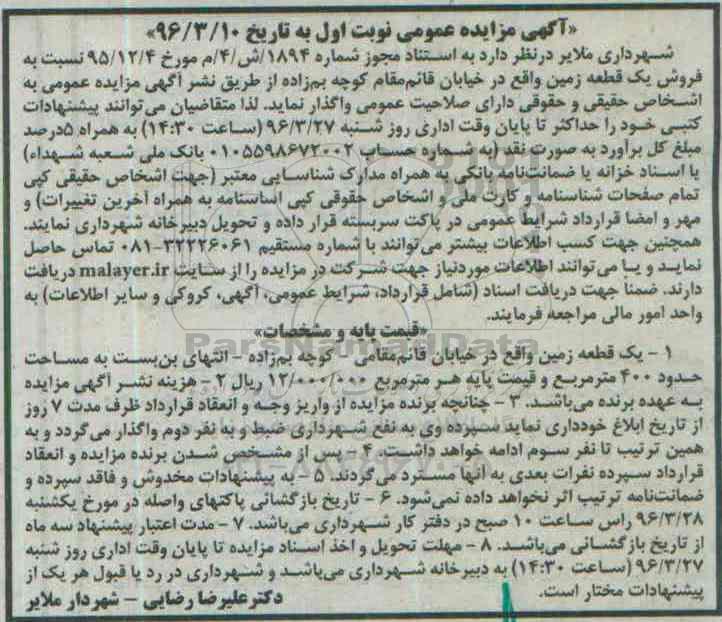 «آگهی مزایده عمومی نوبت اول به تاریخ ۹۶/۳/۱۰»
شهرداری ملایر درنظر دارد به استناد مجوز شماره ۱۸۹۴/ش/۴/م مورخ ۹۵/۱۲/۴ نسبت به
فروش یک قطعه زمین واقع در خیابان قائم‌مقام کوچه بم‌زاده از طریق نشر آگهی مزایده عمومی به
اشخاص حقیقی و حقوقی دارای صلاحیت عمومی واگذار نماید. لذا متقاضیان می‌توانند پیشنهادات
کتبی خود را حداکثر تا پایان وقت اداری روز شنبه ۹۶/۳/۲۷ (ساعت ۱۴:۳۰) به همراه ۵درصد
مبلغ کل برآورد به صورت نقد (به شماره حساب ۰۱۰۵۵۹۸۶۷۲۰۰۲ بانک ملی شعبه شهداء)
یا اسناد خزانه یا ضمانت‌نامه بانکی به همراه مدارک شناسایی معتبر (جهت اشخاص حقیقی کپی
تمام صفحات شناسنامه و کارت ملی و اشخاص حقوقی کپی اساسنامه به همراه آخرین تغییرات) و
مهر و امضا قرارداد شرایط عمومی در پاکت سربسته قرار داده و تحویل دبیرخانه شهرداری نمایند.
همچنین جهت کسب اطلاعات بیشتر می‌توانند با شماره مستقیم ۳۲۲۲۶۰۶۱-۰۸۱ تماس حاصل
نمایند و یا می‌توانند اطلاعات موردنیاز جهت شرکت در مزایده را از سایت malayer.ir دریافت
دارند. ضمناً جهت دریافت اسناد (شامل قرارداد، شرایط عمومی، آگهی، کروکی و سایر اطلاعات) به
واحد امور مالی مراجعه فرمایند.
«قیمت پایه و مشخصات»
ParsNamadData
۱ - یک قطعه زمین واقع در خیابان قائم‌مقامی - کوچه بم‌زاده - انتهای بن‌بست به مساحت
حدود ۴۰۰ مترمربع و قیمت پایه هر مترمربع ۱۲/۰۰۰/۰۰۰ ریال ۲ - هزینه نشر آگهی مزایده
به عهده برنده می‌باشد. ۳ - چنانچه برنده مزایده از واریز وجه و انعقاد قرارداد ظرف مدت ۷ روز
از تاریخ ابلاغ خودداری نماید سپرده وی به نفع شهرداری ضبط و به نفر دوم واگذار می‌گردد و به
همین ترتیب تا نفر سوم ادامه خواهد داشت. ۴ - پس از مشخص شدن برنده مزایده و انعقاد
قرارداد سپرده نفرات بعدی به آنها مسترد می‌گردند. ۵ - به پیشنهادات مخدوش و فاقد سپرده و
ضمانت‌نامه ترتیب اثر نخواهد داده نمی‌شود. ۶ - تاریخ بازگشائی پاکتهای واصله در مورخ یکشنبه
۹۶/۳/۲۸ راس ساعت ۱۰ صبح در دفتر کار شهرداری می‌باشد. ۷ - مدت اعتبار پیشنهاد سه ماه
از تاریخ بازگشائی می‌باشد. ۸ - مهلت تحویل و اخذ اسناد مزایده تا پایان وقت اداری روز شنبه
۹۶/۳/۲۷ (ساعت ۱۴:۳۰) به دبیرخانه شهرداری می‌باشد و شهرداری در رد یا قبول هر یک از
پیشنهادات مختار است.
دکترعلیرضا رضایی - شهردار ملایر